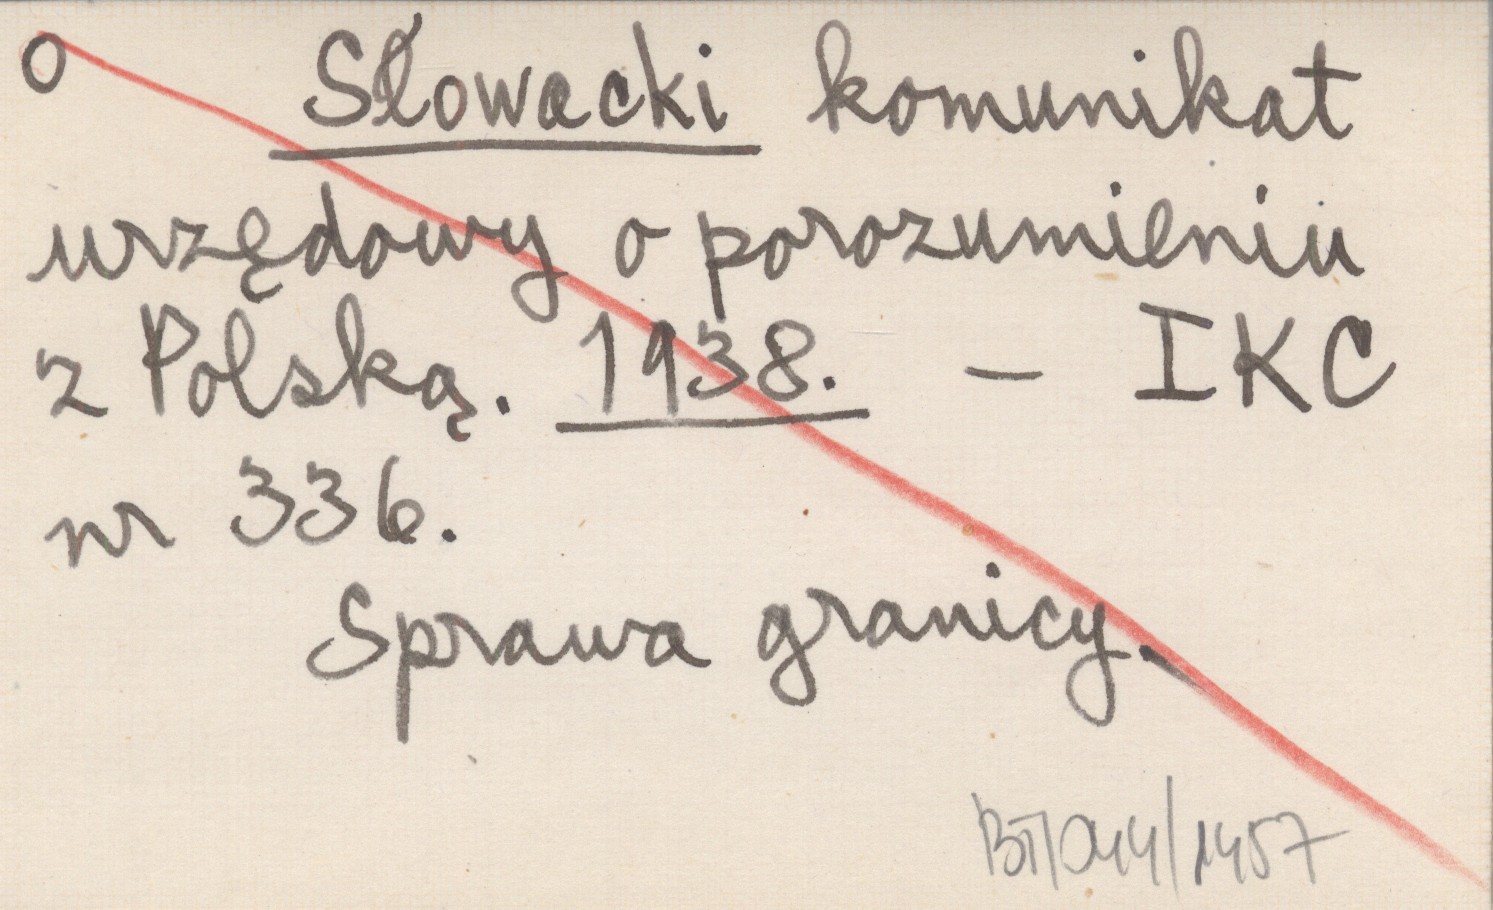 O Słowacki komunikat
urzędowy o porozumieniu
z Polską. 1938. – IKC
nr 336.
Sprawa granicy.
BT/044/1457